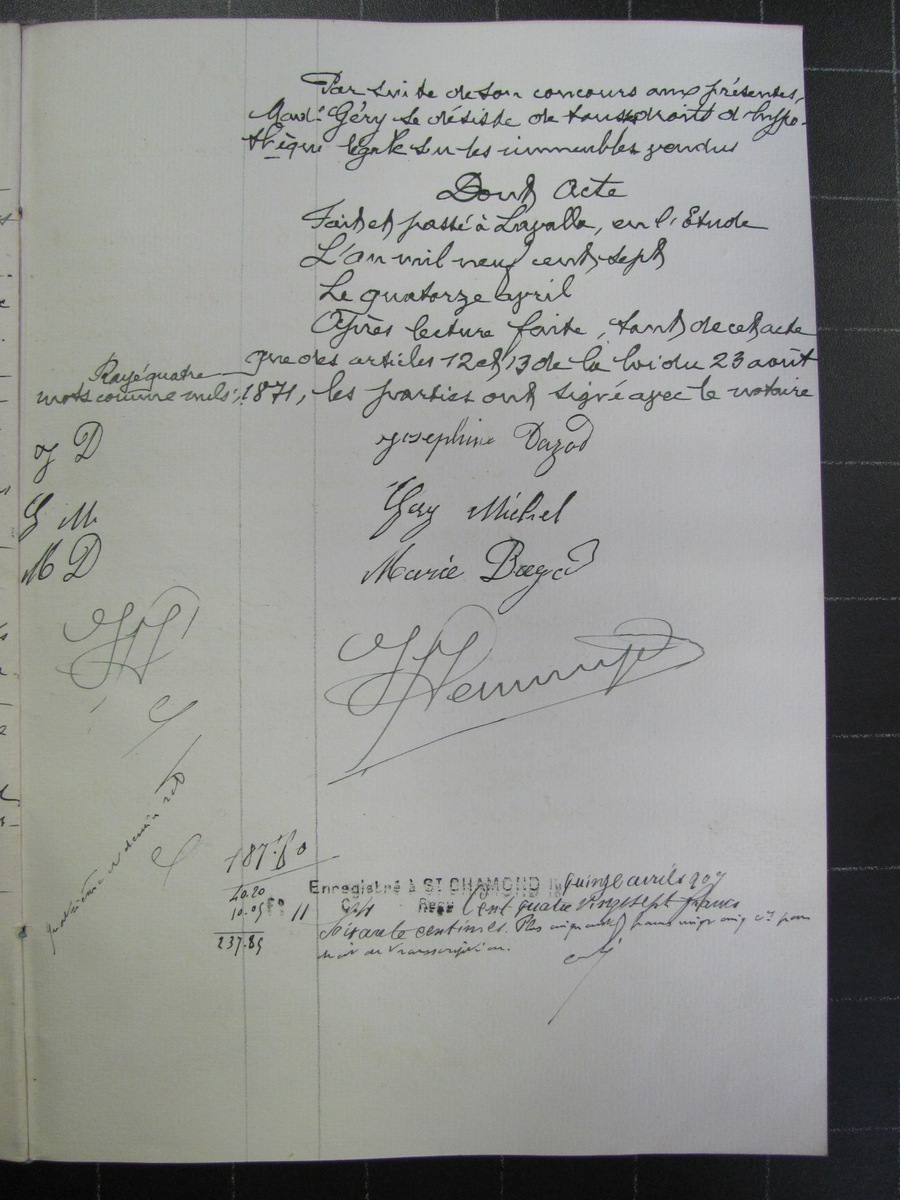 Par suite de son concours aux présentes,
Made Géry se désiste de tous droits d'hypo-
thèque légale sur les immeubles vendus
Dont Acte
Fait et passé à Lavalla, en l'Etude
L'an mil neuf cent sept
Le quatorze avril
Après lecture faite, tant de cet acte
que des articles 12 et 13 de la loi du 23 août
1871, les parties ont signé avec le notaire
Rayé quatre
mots comme nuls.
J D
Josephine
G M
Michel
M D
Marie
187.60
40.20
10.05
237.85
Enregistré à ST CHAMOND le quinze avril 1907
F° 11 C. Reçu Cent quatre vingt sept francs
Soixante centimes. Plus cinquante francs vingt cinq cs pour
droit de transcription.